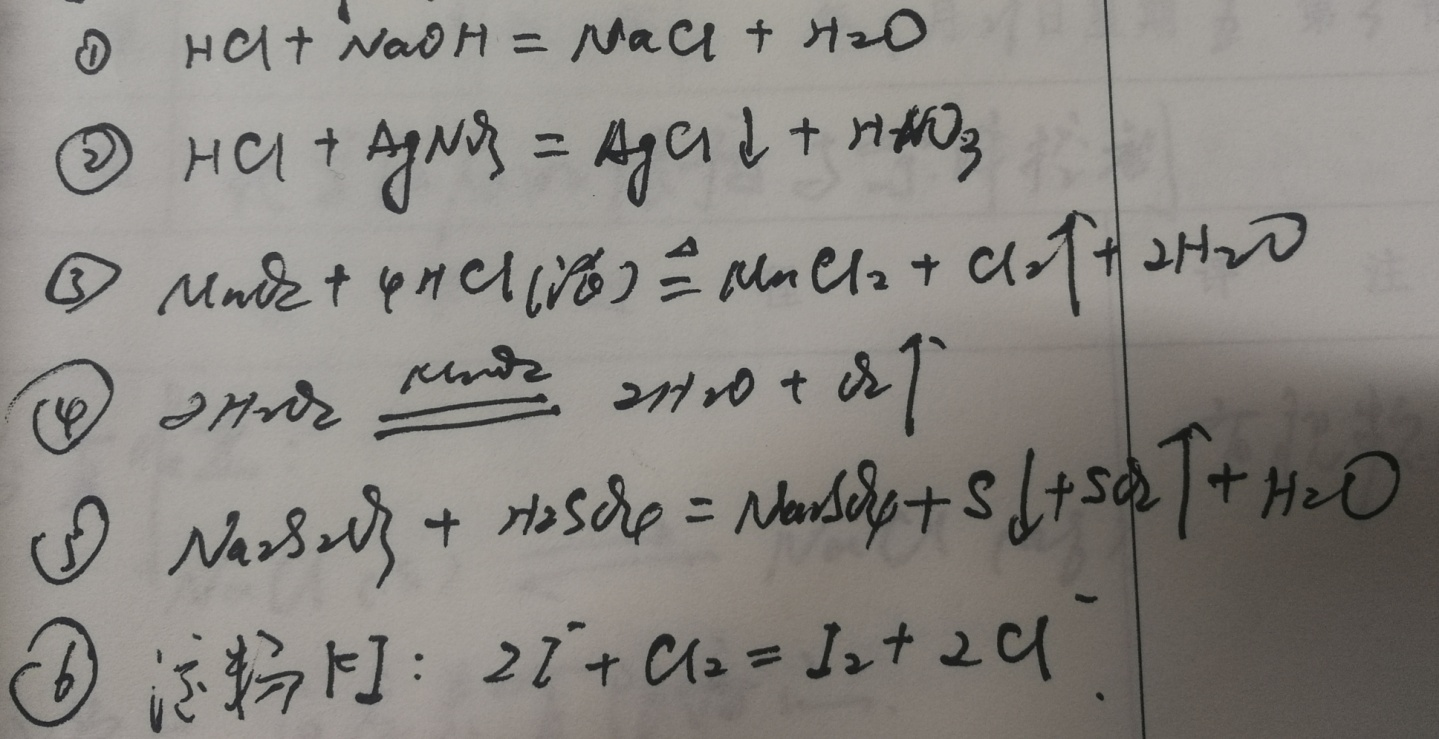 ① HCl + NaOH = NaCl + H2O
② HCl + AgNO3 = AgCl↓ + HNO3
③ MnO2 + 4HCl(浓) ≜ MnCl2 + Cl2↑ + 2H2O
④ 2H2O2 =MnO2= 2H2O + O2↑
⑤ Na2S2O3 + H2SO4 = Na2SO4 + S↓ + SO2↑ + H2O
⑥ 淀粉KI: 2I⁻ + Cl2 = I2 + 2Cl⁻.